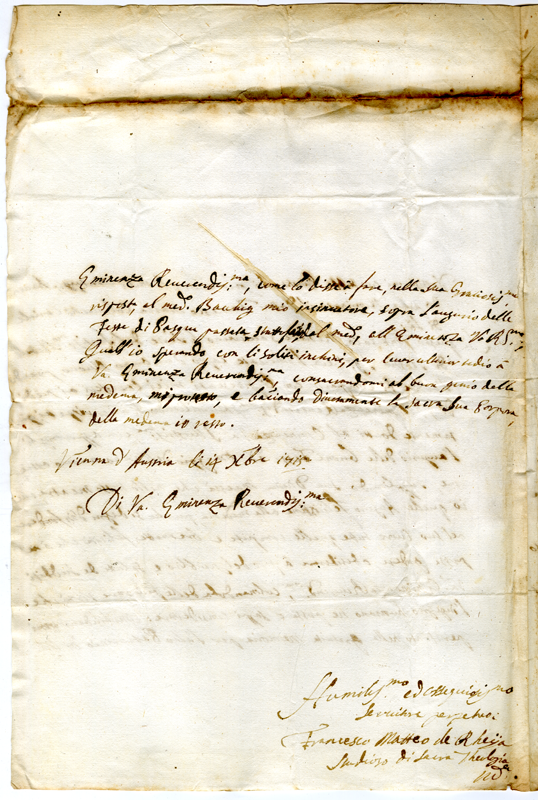 Eminenza Reverendis:ma, come lo disse à fare, nella sua Graciosis:ma
rispost, al med: mio, sopra l'augurio delle
Feste di Pasqua passata, dal med:, all'Eminenza V:a RS:ma,
Quall'io sperando con li soliti inchini, per
Va. Eminenza Reverendis:ma, consacrandomi al buon genio della
medema, e baciando divotamente la Sacra Sua Porpora,
della medema io resto.
Vienna d'Austria li 14 Xbre
Di Va. Eminenza Reverendis:ma
Humilis:mo ed Ossequiosis:mo
Servitore perpetuo:
Francesco Matteo de Rheija
Studioso di Sacra Theologia